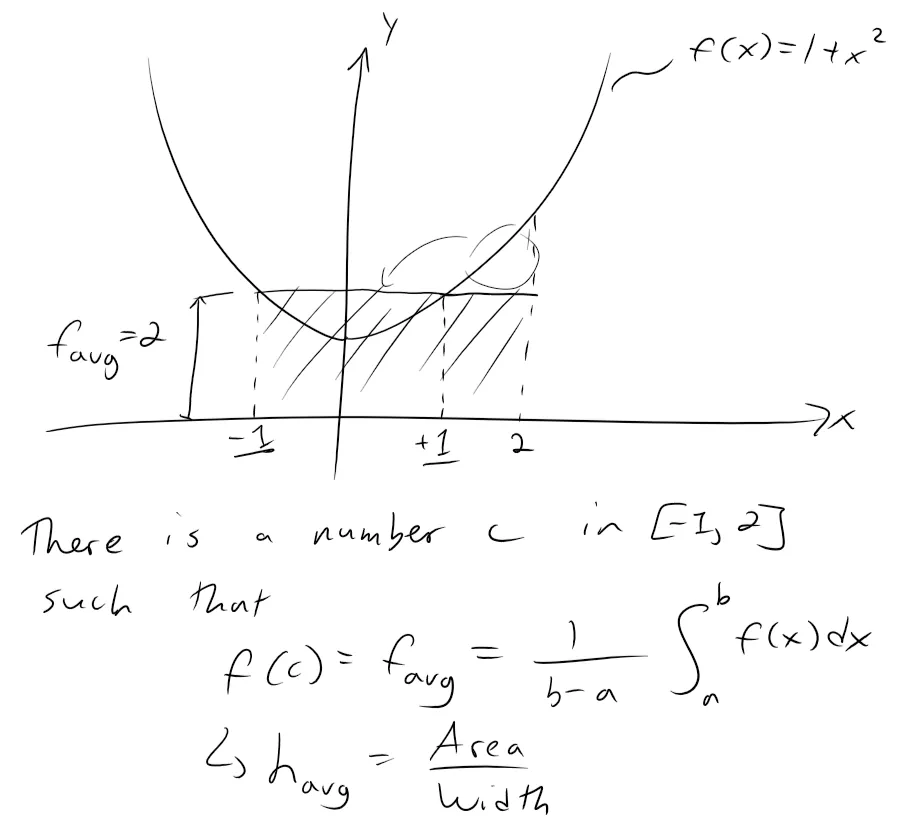 y
f(x)=1+x²
f_avg=2
x
-1 +1 2
There is a number c in [-1, 2]
such that
f(c) = f_avg = 1/(b-a) ∫_a^b f(x)dx
↳ h_avg = Area/Width